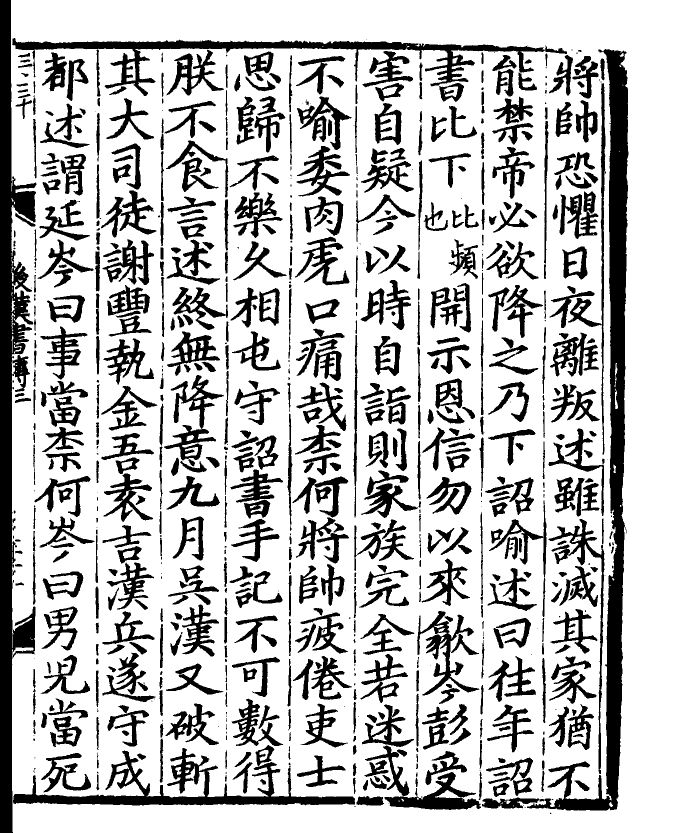 將帥恐懼日夜離叛述雖誅滅其家猶不
能禁帝必欲降之乃下詔喻述曰往年詔
書比下比頻也開示恩信勿以來歙岑彭受
害自疑今以時自詣則家族完全若迷惑
不喻委肉虎口痛哉柰何將帥疲倦吏士
思歸不樂久相屯守詔書手記不可數得
朕不食言述終無降意九月吳漢又破斬
其大司徒謝豐執金吾袁吉漢兵遂守成
都述謂延岑曰事當柰何岑曰男兒當死
後漢書傳三